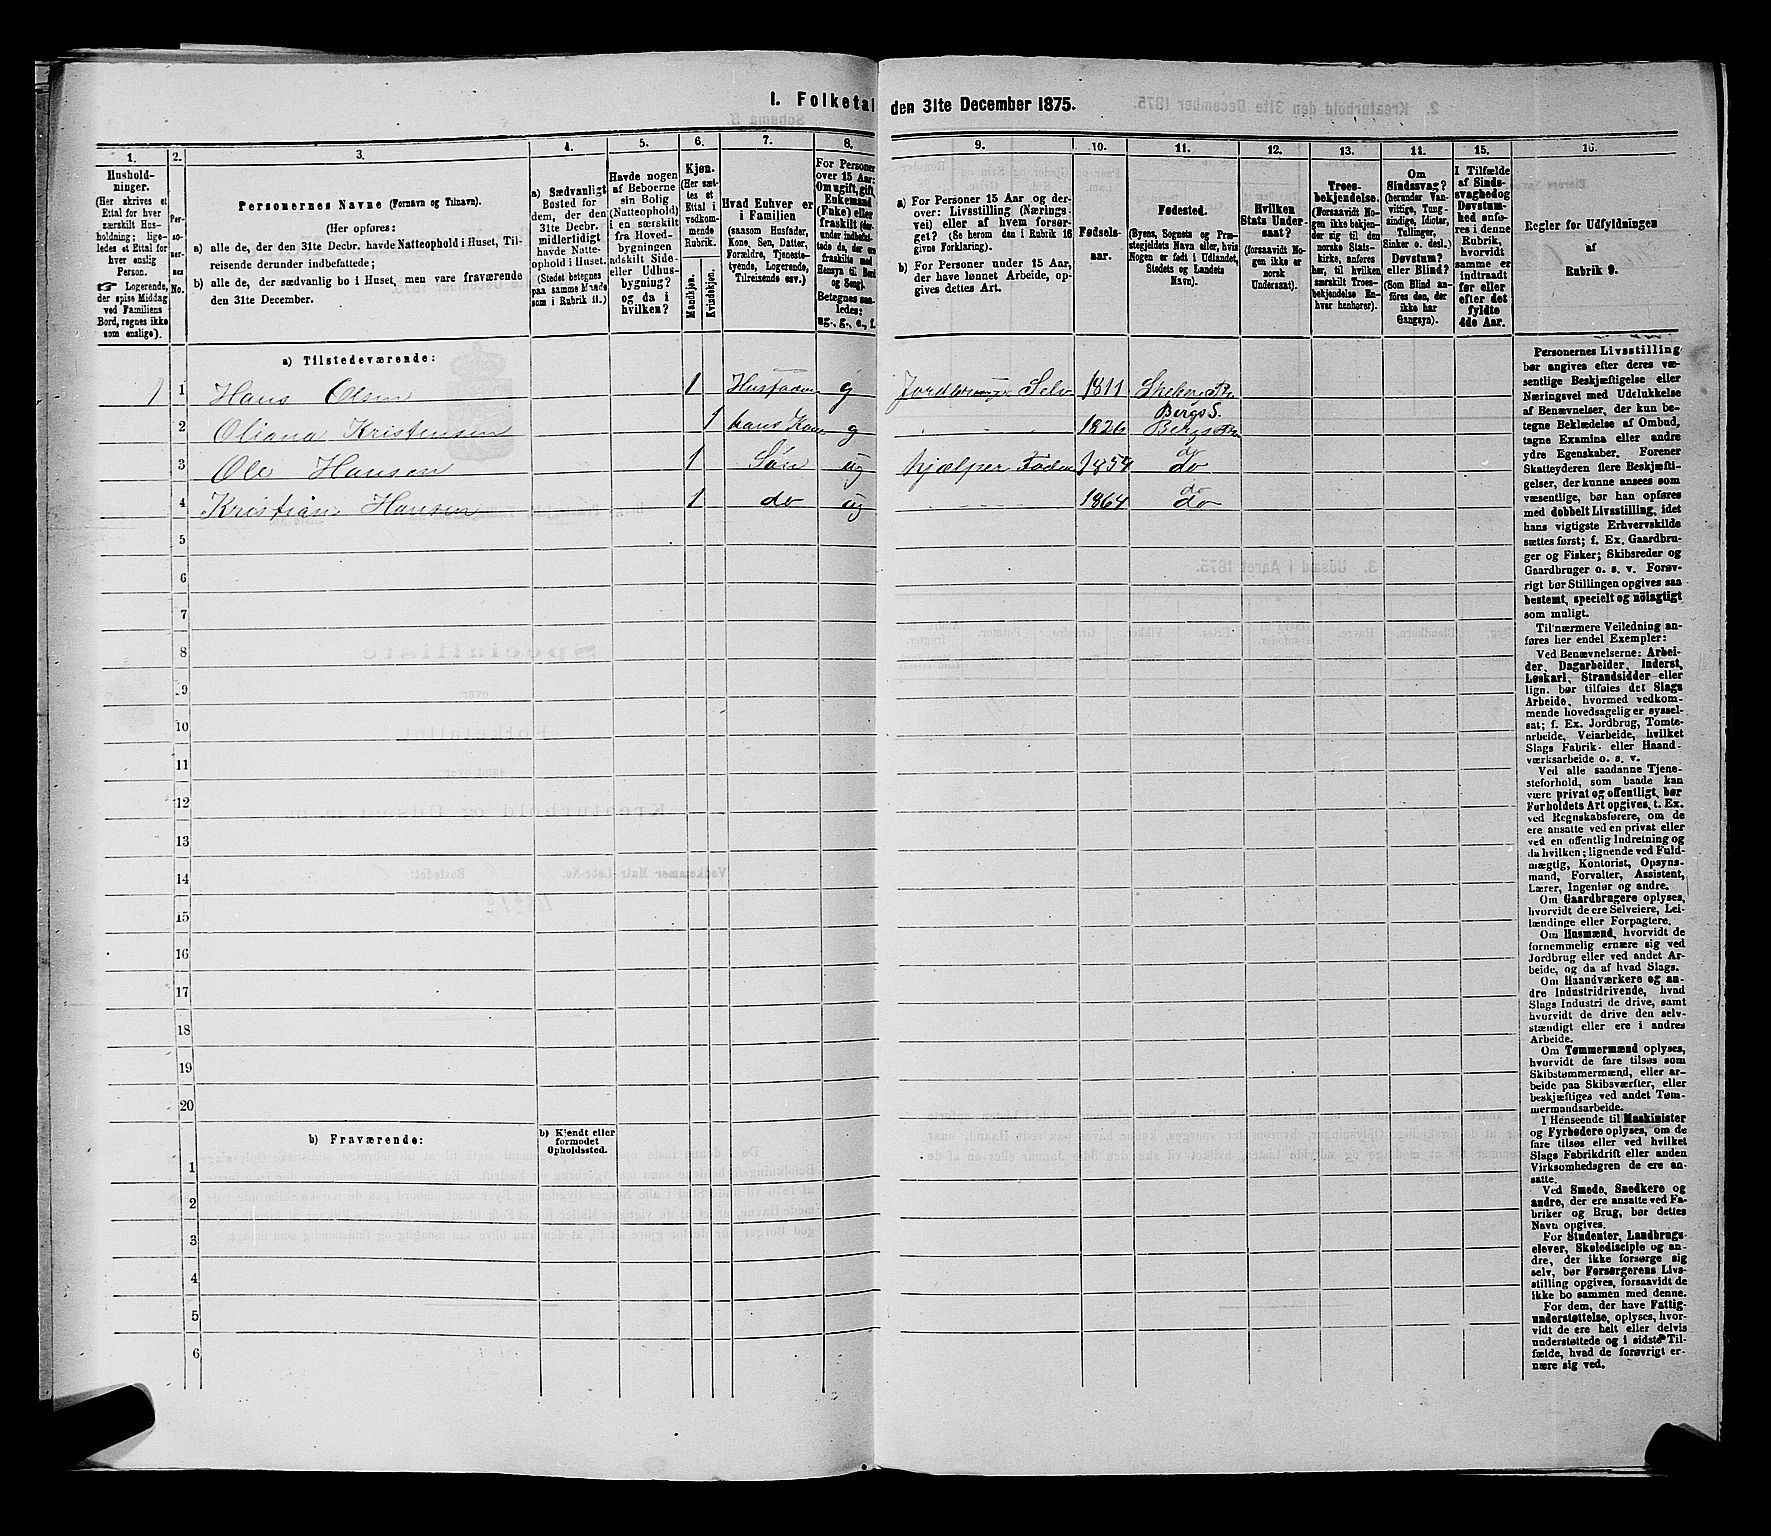 1. Folketal den 31te December 1875.
1.
Hushold-
ninger.
(Her skrives et
Ettal for hver
særskilt Hus-
holdning; lige-
ledes et Ettal for
hver enslig
Person.
Logerende,
der spise Middag
ved Familiens
Bord, regnes ikke
som enslige).
2.
Per-
so-
ner-
nes
No.
3.
Personernes Navne (Fornavn og Tilnavn).
(Her opføres:
a) alle de, der den 31te Decbr. havde Natteophold i Huset, Til-
reisende derunder indbefattede;
b) alle de, der sædvanlig bo i Huset, men vare fraværende
den 31te December.
4.
a) Sædvanligt
Bosted for
dem, der den
31te Decbr.
midlertidigt
havde Natte-
ophold i Huset.
(Stedet betegnes
paa samme Maade
som i Rubrik 11.)
5.
Havde nogen
af Beboerne
sin Bolig
(Natteophold)
i en særskilt
fra Hoved-
bygningen
adskilt Side-
eller Udhus-
bygning?
og da i
hvilken?
6.
Kjøn.
(Her sæt-
tes et
Ettal i
vedkom-
mende
Rubrik.
Mandkjøn.
Kvindekjøn.
7.
Hvad Enhver er
i Familien
(saasom Husfader,
Kone, Søn, Datter,
Forældre, Tjeneste-
tyende, Logerende,
Tilreisende osv.)
8.
For Personer
over 15 Aar:
Om ugift, gift,
Enkemand
(Enke) eller
fraskilt (der-
under indbefat-
tede da, der ere
fraskilte med
Hensyn til Bord
og Seng).
Betegnes saa-
ledes:
ug., g., e., f.
9.
a) For Personer 15 Aar og der-
over: Livsstilling (Nærings-
vei) eller af hvem forsør-
get? (Se herom den i Rubrik 16
givne Forklaring).
b) For Personer under 15 Aar,
der have lønnet Arbeide, op-
gives dettes Art.
10.
Fødsels-
aar.
11.
Fødested.
(Byens, Sognets og Præ-
stegjeldets Navn eller, hvis
Nogen er født i Udlandet,
Stedets og Landets
Navn).
12.
Hvilken
Stats Under-
saat?
(forsaavidt No-
gen ikke er
norsk
Undersaat).
13.
Troes-
bekjendelse.
(Forsaavidt No-
gen ikke bekjen-
der sig til den
norske Stats-
kirke, anføres
her, til hvilken
særskilt Troes-
bekjendelse En-
hver henhører).
14.
Om
Sindssvag?
(herunder Van-
vittige, Tung-
sindige, Idioter,
Tullinger,
Sinker o. desl.)
Døvstum?
eller Blind?
(Som Blind an-
føres den, der
ikke har
Gangsyn).
15.
I Tilfælde
af Sinds-
svaghed og
Døvstum-
hed anfø-
res i denne
Rubrik,
hvorvidt
samme er
indtraadt
før eller
efter det
fyldte
4de Aar.
16.
Regler for Udfyldningen
af
Rubrik 9.
a) Tilstedeværende:
1 1 Hans Olsen 1 Husfader g Selv 1811
Bergs S.
2 Oliana Kristensen 1 hans Kone g 1826 Bergs Pr
do
3 Ole Hansen 1 Søn ug hjælper Faderen 1854 do
do
4 Kristian Hansen 1 do ug 1864 do
5
6
7
8
9
10
11
12
13
14
15
16
17
18
19
20
b) Fraværende:
b) Kjendt eller
formodet
Opholdssted.
1
2
3
4
5
6
Personernes Livsstilling
bør angives efter deres væ-
sentlige Beskjæftigelse eller
Næringsvei med Udelukkelse
af Benævnelser, der kun be-
tegne Beklædelse af Ombud,
tagne Examina eller andre
ydre Egenskaber. Forener
Skatteyderen flere Beskjæfti-
gelser, der kunne ansees som
væsentlige, bør han opføres
med dobbelt Livsstilling, idet
hans vigtigste Erhvervskilde
sættes først; f. Ex. Gaardbru-
ger og Fisker; Skibsreder og
Gaardbruger o. s. v. Forøv-
rigt bør Stillingen opgives saa
bestemt, specielt og nöiagtigt
som muligt.
Til nærmere Veiledning an-
føres her endel Exempler:
Ved Benævnelserne: Arbei-
der, Dagarbeider, Inderst,
Løskarl, Strandsidder eller
lign. bør tilføies det Slags
Arbeide, hvormed vedkom-
mende hovedsagelig er syssel-
sat; f. Ex. Jordbrug, Tomte-
arbeide, Veiarbeide, hvilket
Slags Fabrik- eller Haand-
værksarbeide o. s. v.
Ved alle saadanne Tjene-
steforhold, som baade kan
være privat og offentligt, bør
Forholdets Art opgives, t. Ex.
ved Regnskabsførere, om de
ere ansatte ved en privat eller
ved en offentlig Indretning og
da hvilken; lignende ved Fuld-
mægtig, Kontorist, Opsyns-
mand, Forvalter, Assistent,
Lærer, Ingeniør og andre.
Om Gaardbrugere oplyses,
hvorvidt de ere Selveiere, Lei-
lændinge eller Forpagtere.
Om Husmænd, hvorvidt de
fornemmelig ernære sig ved
Jordbrug eller ved andet Ar-
beide, og da af hvad Slags.
Om Haandværkere og an-
dre Industridrivende, hvad
Slags Industri de drive, samt
hvorvidt de drive den selv-
stændigt eller ere i andres
Arbeide.
Om Tømmermænd oplyses,
hvorvidt de fare tilsøs som
Skibstømmermænd, eller ar-
beide paa Skibsværfter, eller
beskjæftiges ved andet Tøm-
mermandsarbeide.
I Henseende til Maskinister
og Fyrbødere oplyses, om de
fare tilsøs eller ved hvilket
Slags Fabrikdrift eller anden
Virksomhedsgren de ere an-
satte.
Ved Smede, Snedkere og
andre, der ere ansatte ved Fa-
briker og Brug, bør dettes
Navn opgives.
For Studenter, Landbrugs-
elever, Skoledisciple og an-
dre, der ikke forsørge sig
selv, bør Forsørgerens Livs-
stilling opgives, forsaavidt de
ikke bo sammen med denne.
For dem, der have Fattig-
understøttelse, oplyses, hvor-
vidt de ere helt eller delvis
understøttede og i sidste Til-
fælde, hvad de forøvrigt er-
nære sig ved.